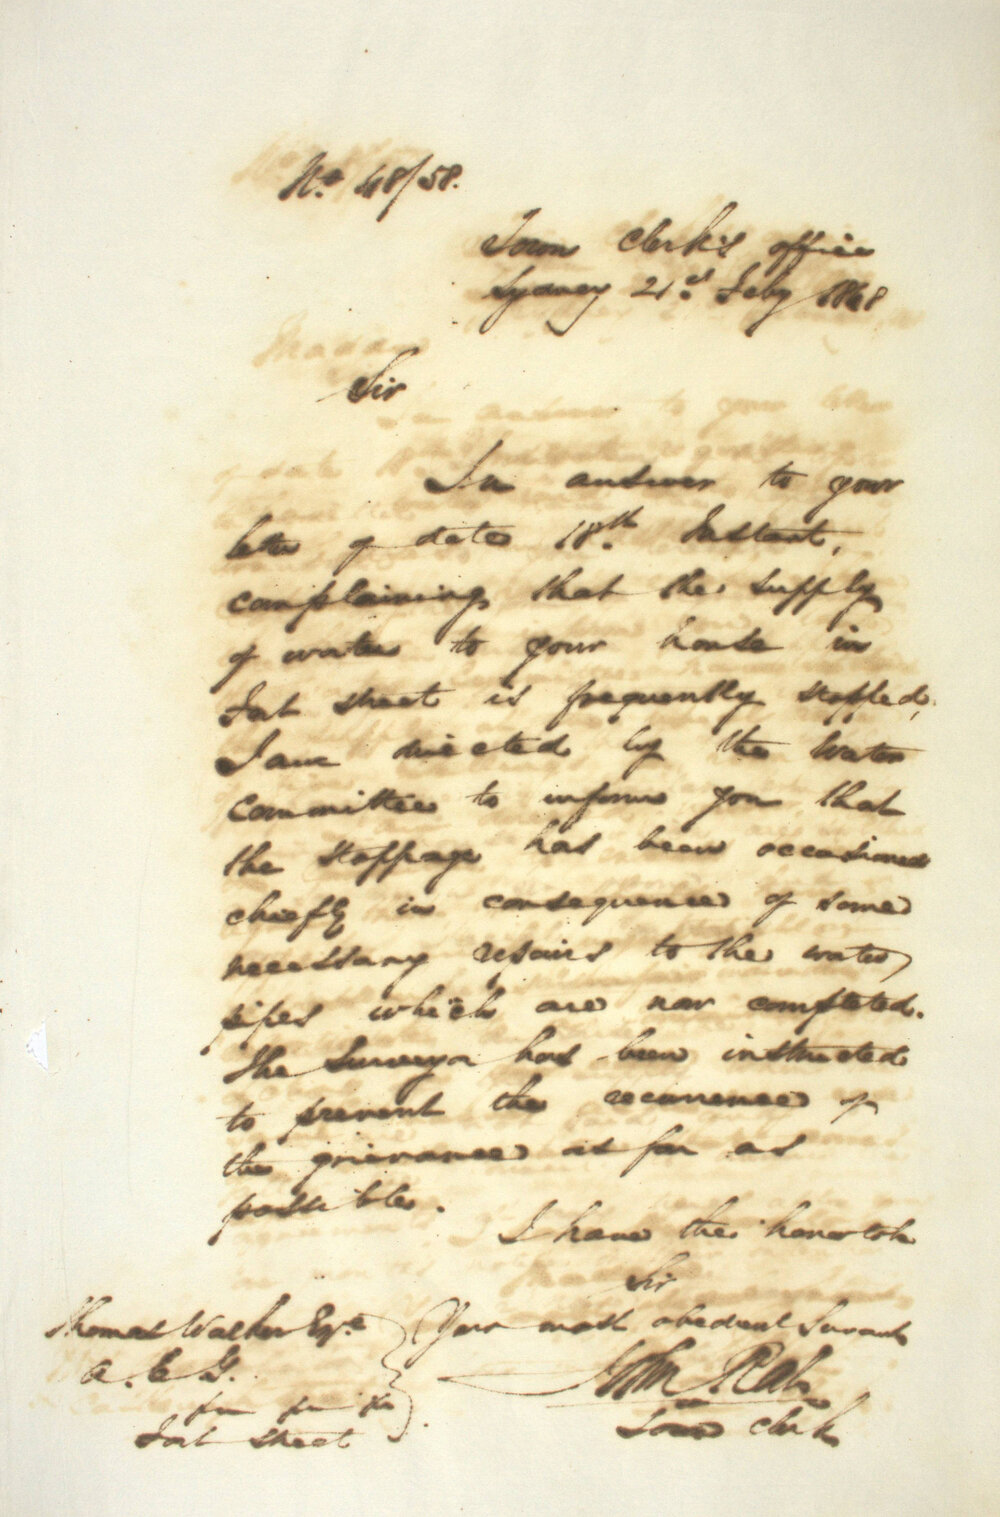 No. 48/58.
Town Clerk's office
Sydney 21st Feby 1848
Sir
In answer to your
letter of date 18th Instant,
complaining that the supply
of water to your house in
Fort street is frequently stopped,
I am directed by the Water
Committee to inform you that
the stoppage has been occasioned
chiefly in consequence of some
necessary repairs to the water
pipes which are now completed.
The Surveyor has been instructed
to prevent the recurrence of
the grievance as far as
possible.
I have the honor to be
Sir
Your most obedient Servant
John Rae
Town Clerk
Thomas Walker Esqre
A. C. G.
Fort street